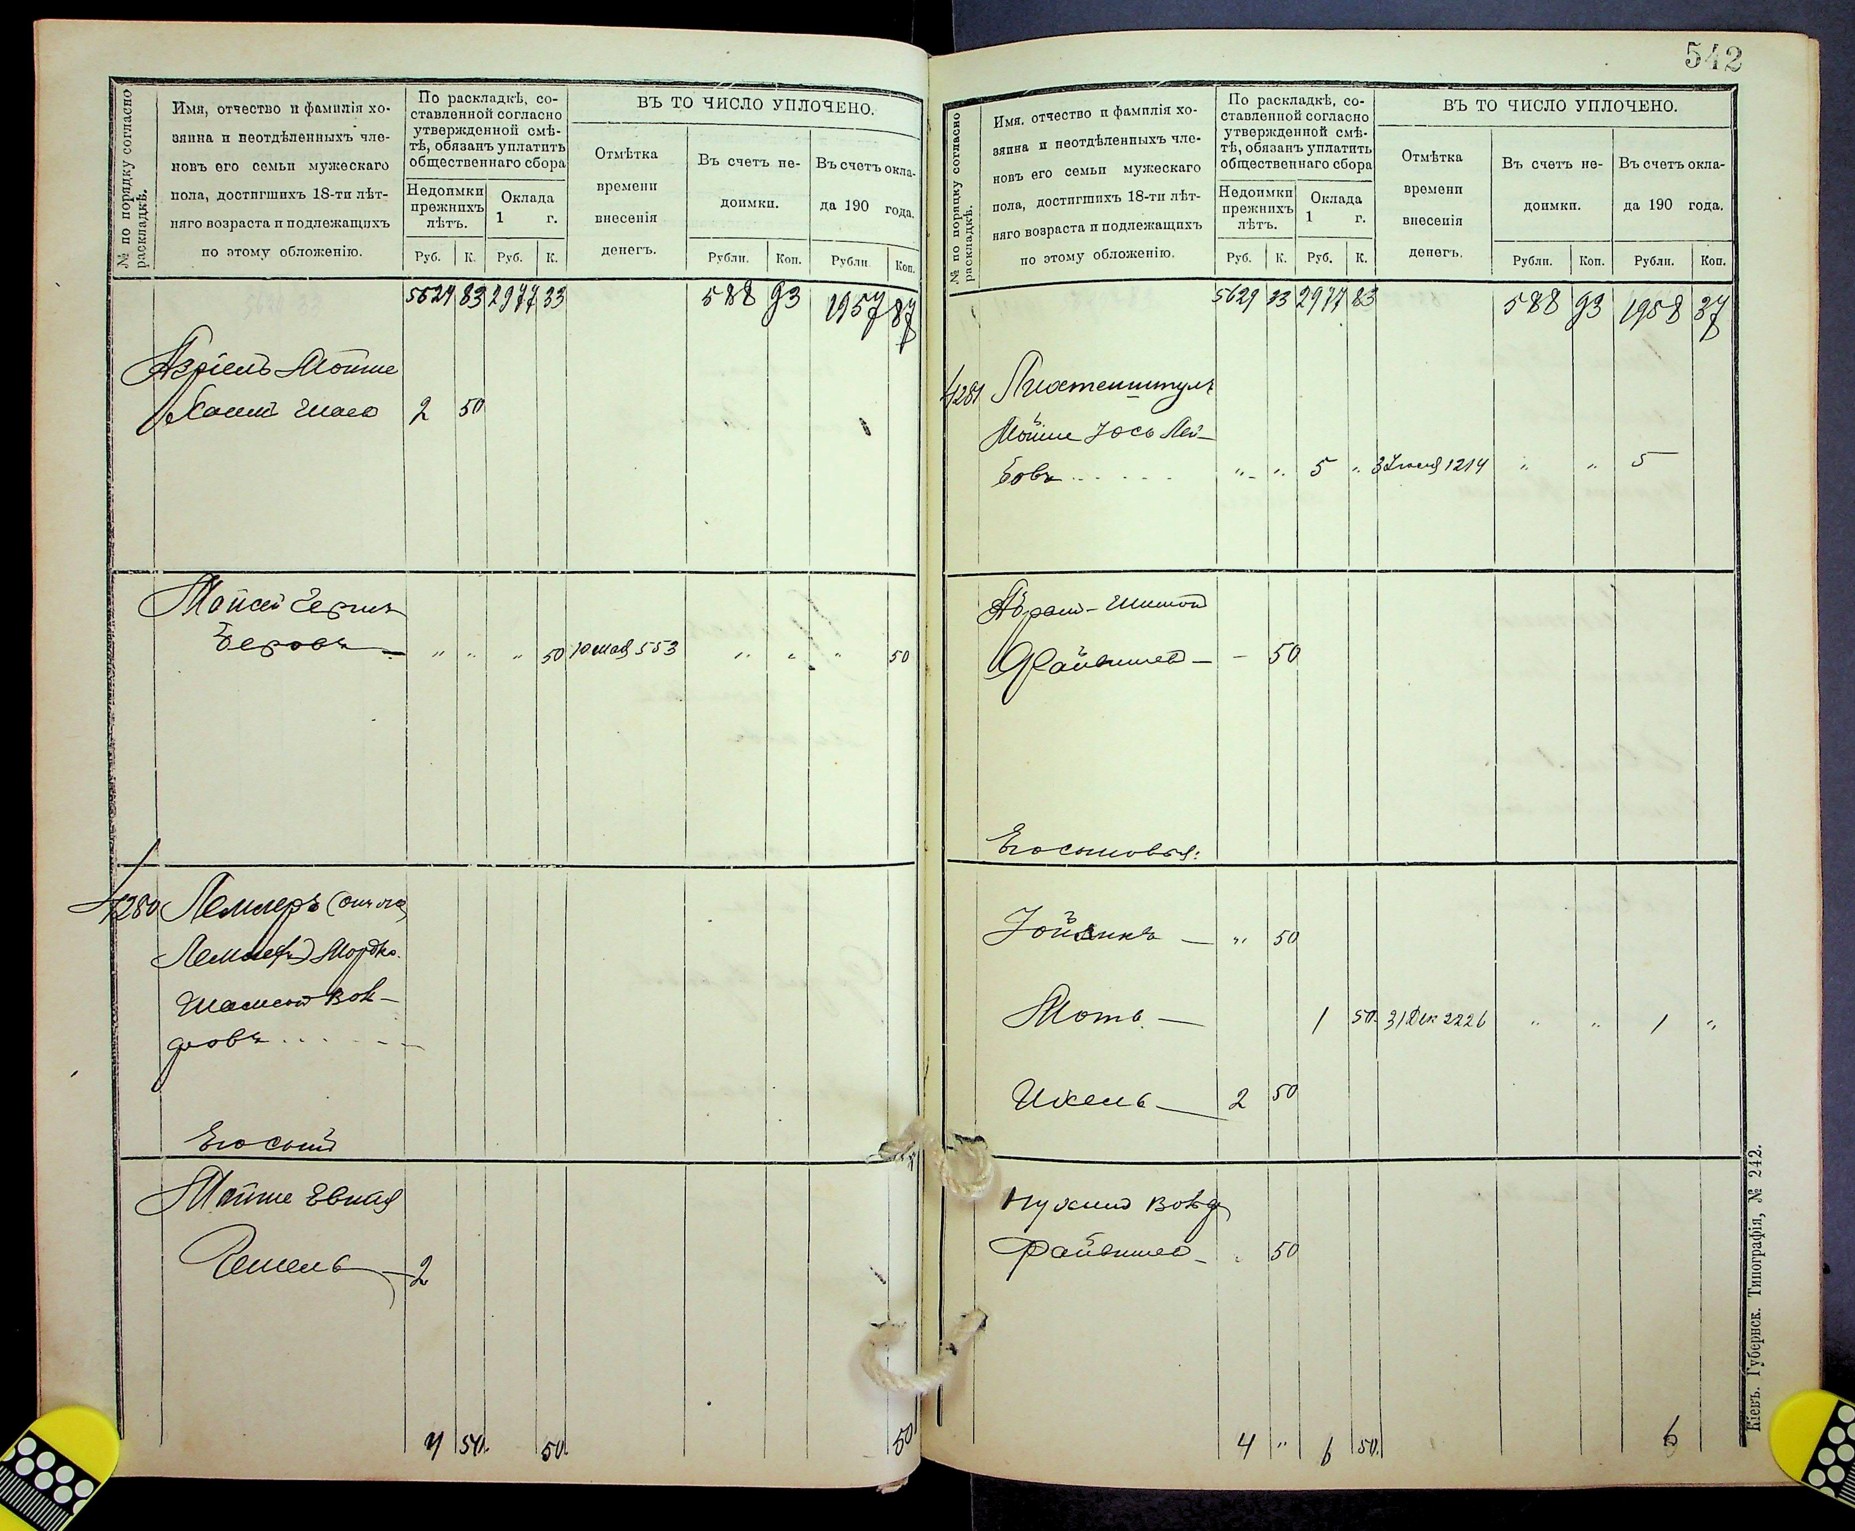 № по порядку согласно
раскладкѣ.
Имя, отчество и фамилія хо-
зяина и неотдѣленныхъ чле-
новъ его семьи мужескаго
пола, достигшихъ 18-ти лѣт-
няго возраста и подлежащихъ
по этому обложенію.
По раскладкѣ, со-
ставленной согласно
утвержденной смѣ-
тѣ, обязанъ уплатить
общественнаго сбора
Недоимки
прежнихъ
лѣтъ.
Оклада
1 г.
ВЪ ТО ЧИСЛО УПЛОЧЕНО.
Отмѣтка
времени
внесенія
денегъ.
Въ счетъ не-
доимки.
Въ счетъ окла-
да 190 года.
Руб. К. Руб. К. Рубли. Коп. Рубли. Коп.
83 2977 33 588 93 1957 87
Азріель Мошке
Хаим 2 50
Мойсей
Беровъ — „ „ „ 50 10 мая 553 „ „ „ 50
1280 Лемперъ
Мордко
Шамсон Вол-
фовъ . . . . .
Его сын
Мойше
— 2
4 50. 50. 50
542
№ по порядку согласно
раскладкѣ.
Имя, отчество и фамилія хо-
зяина и неотдѣленныхъ чле-
новъ его семьи мужескаго
пола, достигшихъ 18-ти лѣт-
няго возраста и подлежащихъ
по этому обложенію.
По раскладкѣ, со-
ставленной согласно
утвержденной смѣ-
тѣ, обязанъ уплатить
общественнаго сбора
Недоимки
прежнихъ
лѣтъ.
Оклада
1 г.
ВЪ ТО ЧИСЛО УПЛОЧЕНО.
Отмѣтка
времени
внесенія
денегъ.
Въ счетъ не-
доимки.
Въ счетъ окла-
да 190 года.
Руб. К. Руб. К. Рубли. Коп. Рубли. Коп.
5629 33 2977 83 588 93 1958 37
1281 Лихтенштулъ
Мойше Іось Лей-
бовъ . . . . . „ „ 5 „ 3 Іюня 1214 „ „ 5
Абрам-Шимон
Файвишев — — 50
Его сыновья:
Іойникъ — „ 50
Моть — 1 50. 31 Дек 2226 „ „ 1 „
Икель — 2 50
Нухим Волф
Файвишев — 50
4 „ 6 50. 6
Кіевъ. Губернск. Типографія, № 242.